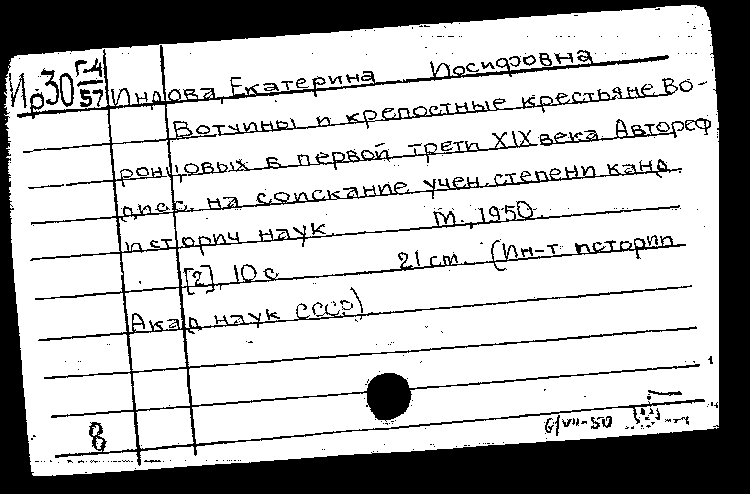 Ир30 Г-4/57 Индова, Екатерина Иосифовна
Вотчины и крепостные крестьяне Во-
ронцовых в первой трети XIX века. Автореф.
дисс. на соискание учен. степени канд.
историч наук. М., 1950.
[2], 10 с 21 см. (Ин-т истории
Акад наук СССР)
8
6/VII-50